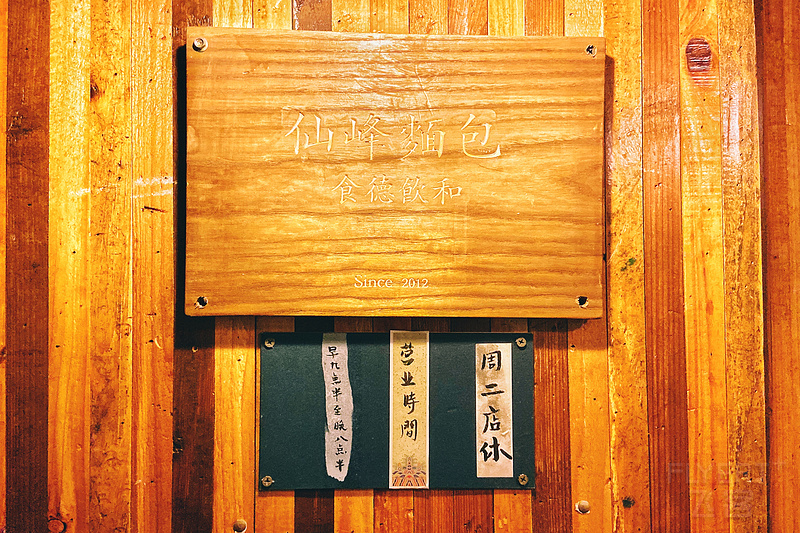 仙峰麵包
食德飲和
Since 2012
周二店休
营业時間
早九点半至晚八点半